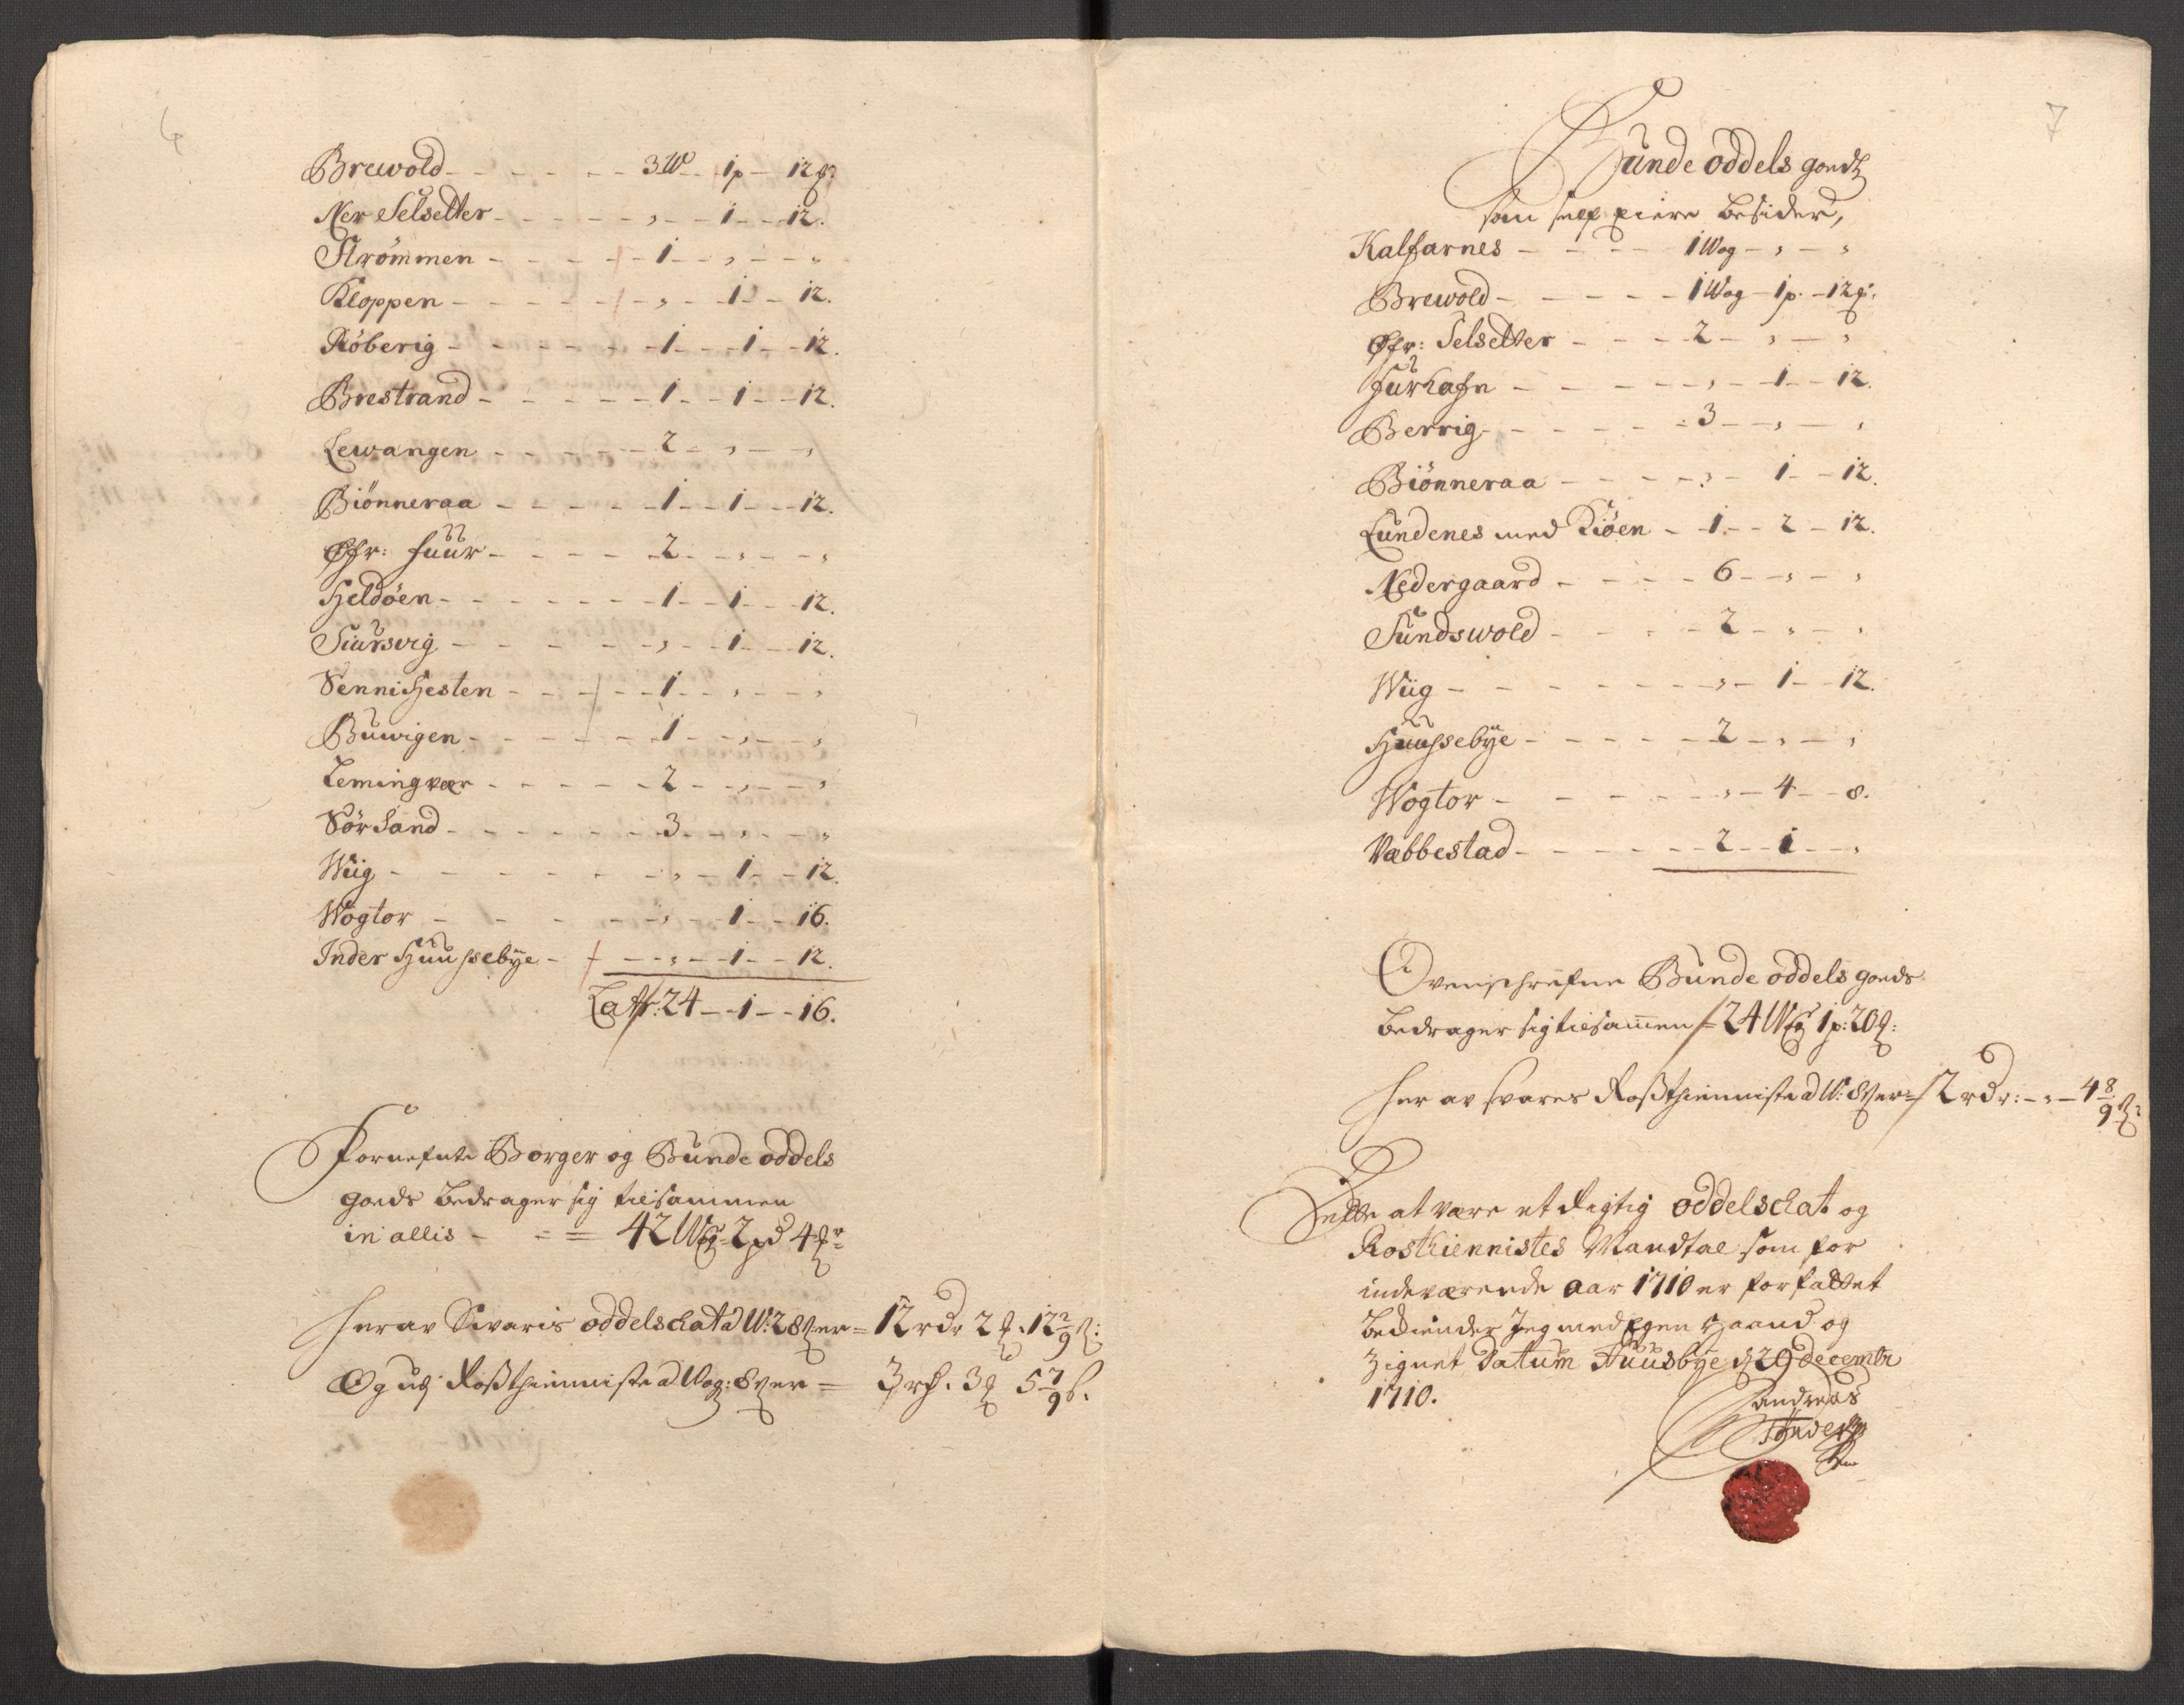 6
Brewold - - - - - - 3 W - - 1 p - 12 ℔:
Ner Selsetter - - - - - - , - - 1 - - 12.
Strømmen - - - - - 1 - - , - - "
Kloppen - - - - - , - - 1 - - 12.
Röberig - - - - - - 1 - - 1 - - 12.
Brestrand - - - - - 1 - - 1 - - 12.
Lewangen - - - - - 2 - - , - - ,
Biönneraa - - - - - 1 - - 1 - - 12.
Øfr: fuur - - - - 2 - - , - - ,
Heldöen - - - - - - 1 - - 1 - - 12.
Siursvig - - - - - , - - 1 - - 12.
SenniHesten - - - - 1 - - , - - ,
Buwigen - - - - - 1 - - , - - ,
Lemingvær - - - - - 2 - - , - - ,
Sörsand - - - - - - 3 - - , - - "
Wiig - - - - - - , - - 1 - - 12.
Wogtor - - - - - , - - 1 - - 16.
Inder Huussebÿe - - - , - - 1 - - 12.
Latr. 24 - - 1 - - 16.
Fornefnte Borger og Bunde oddels
goeds bedrager sig tilsammen
in allis - = = 42 Wog 2 pd 4 ℔r
her av Swaris oddelschat a W: 28 ser = 12 rdr 2 ℔. 12 2/9 ß:
Og udj Rossthienniste a Wog: 8 ser = 3 rh. 3 ℔ 5 7/9 ß.
7
Bunde oddels goeds
som self eiere besider,
Kalfarnes - - - - 1 Wog - , - "
Brewold - - - - - 1 Wog - 1 p. - 12 ℔.
Øfr: Selsetter - - - 2 - , - ,
furhafn - - - - - , - - 1 - - 12.
Berrig - - - - - - 3 - - , - - ,
Biönneraa - - - - , - 1 - - 12.
Lundenes med Kiöen - 1 - - 2 - 12.
Nedergaard - - - - 6 - - , - ,
Sundswold - - - - 2 - , - ,
Wiig - - - - - - , - 1 - - 12.
Huussebÿe - - - - - 2 - , - ,
Wogtor - - - - - , - 4 - - 8.
Vebbestad - - - - - - 2 - - 1 - - ,
Ovenschrefne Bunde oddels goeds
bedrager sig tilsam̅en = 24 Wog 1 p: 20 ℔:
her av svares Rossthienniste a W: 8 ser = 2 rdr: - , - 4 8/9 ß:
Dette at være et Rigtig oddelschat og
Rosthiennistes Mandtal som for
indeværende aar 1710 er forfattet
bekiender Jeg med Egen Haand og
Zignet Datum Huusbÿe d 29 decembr
1710.
Andreas
Tönder